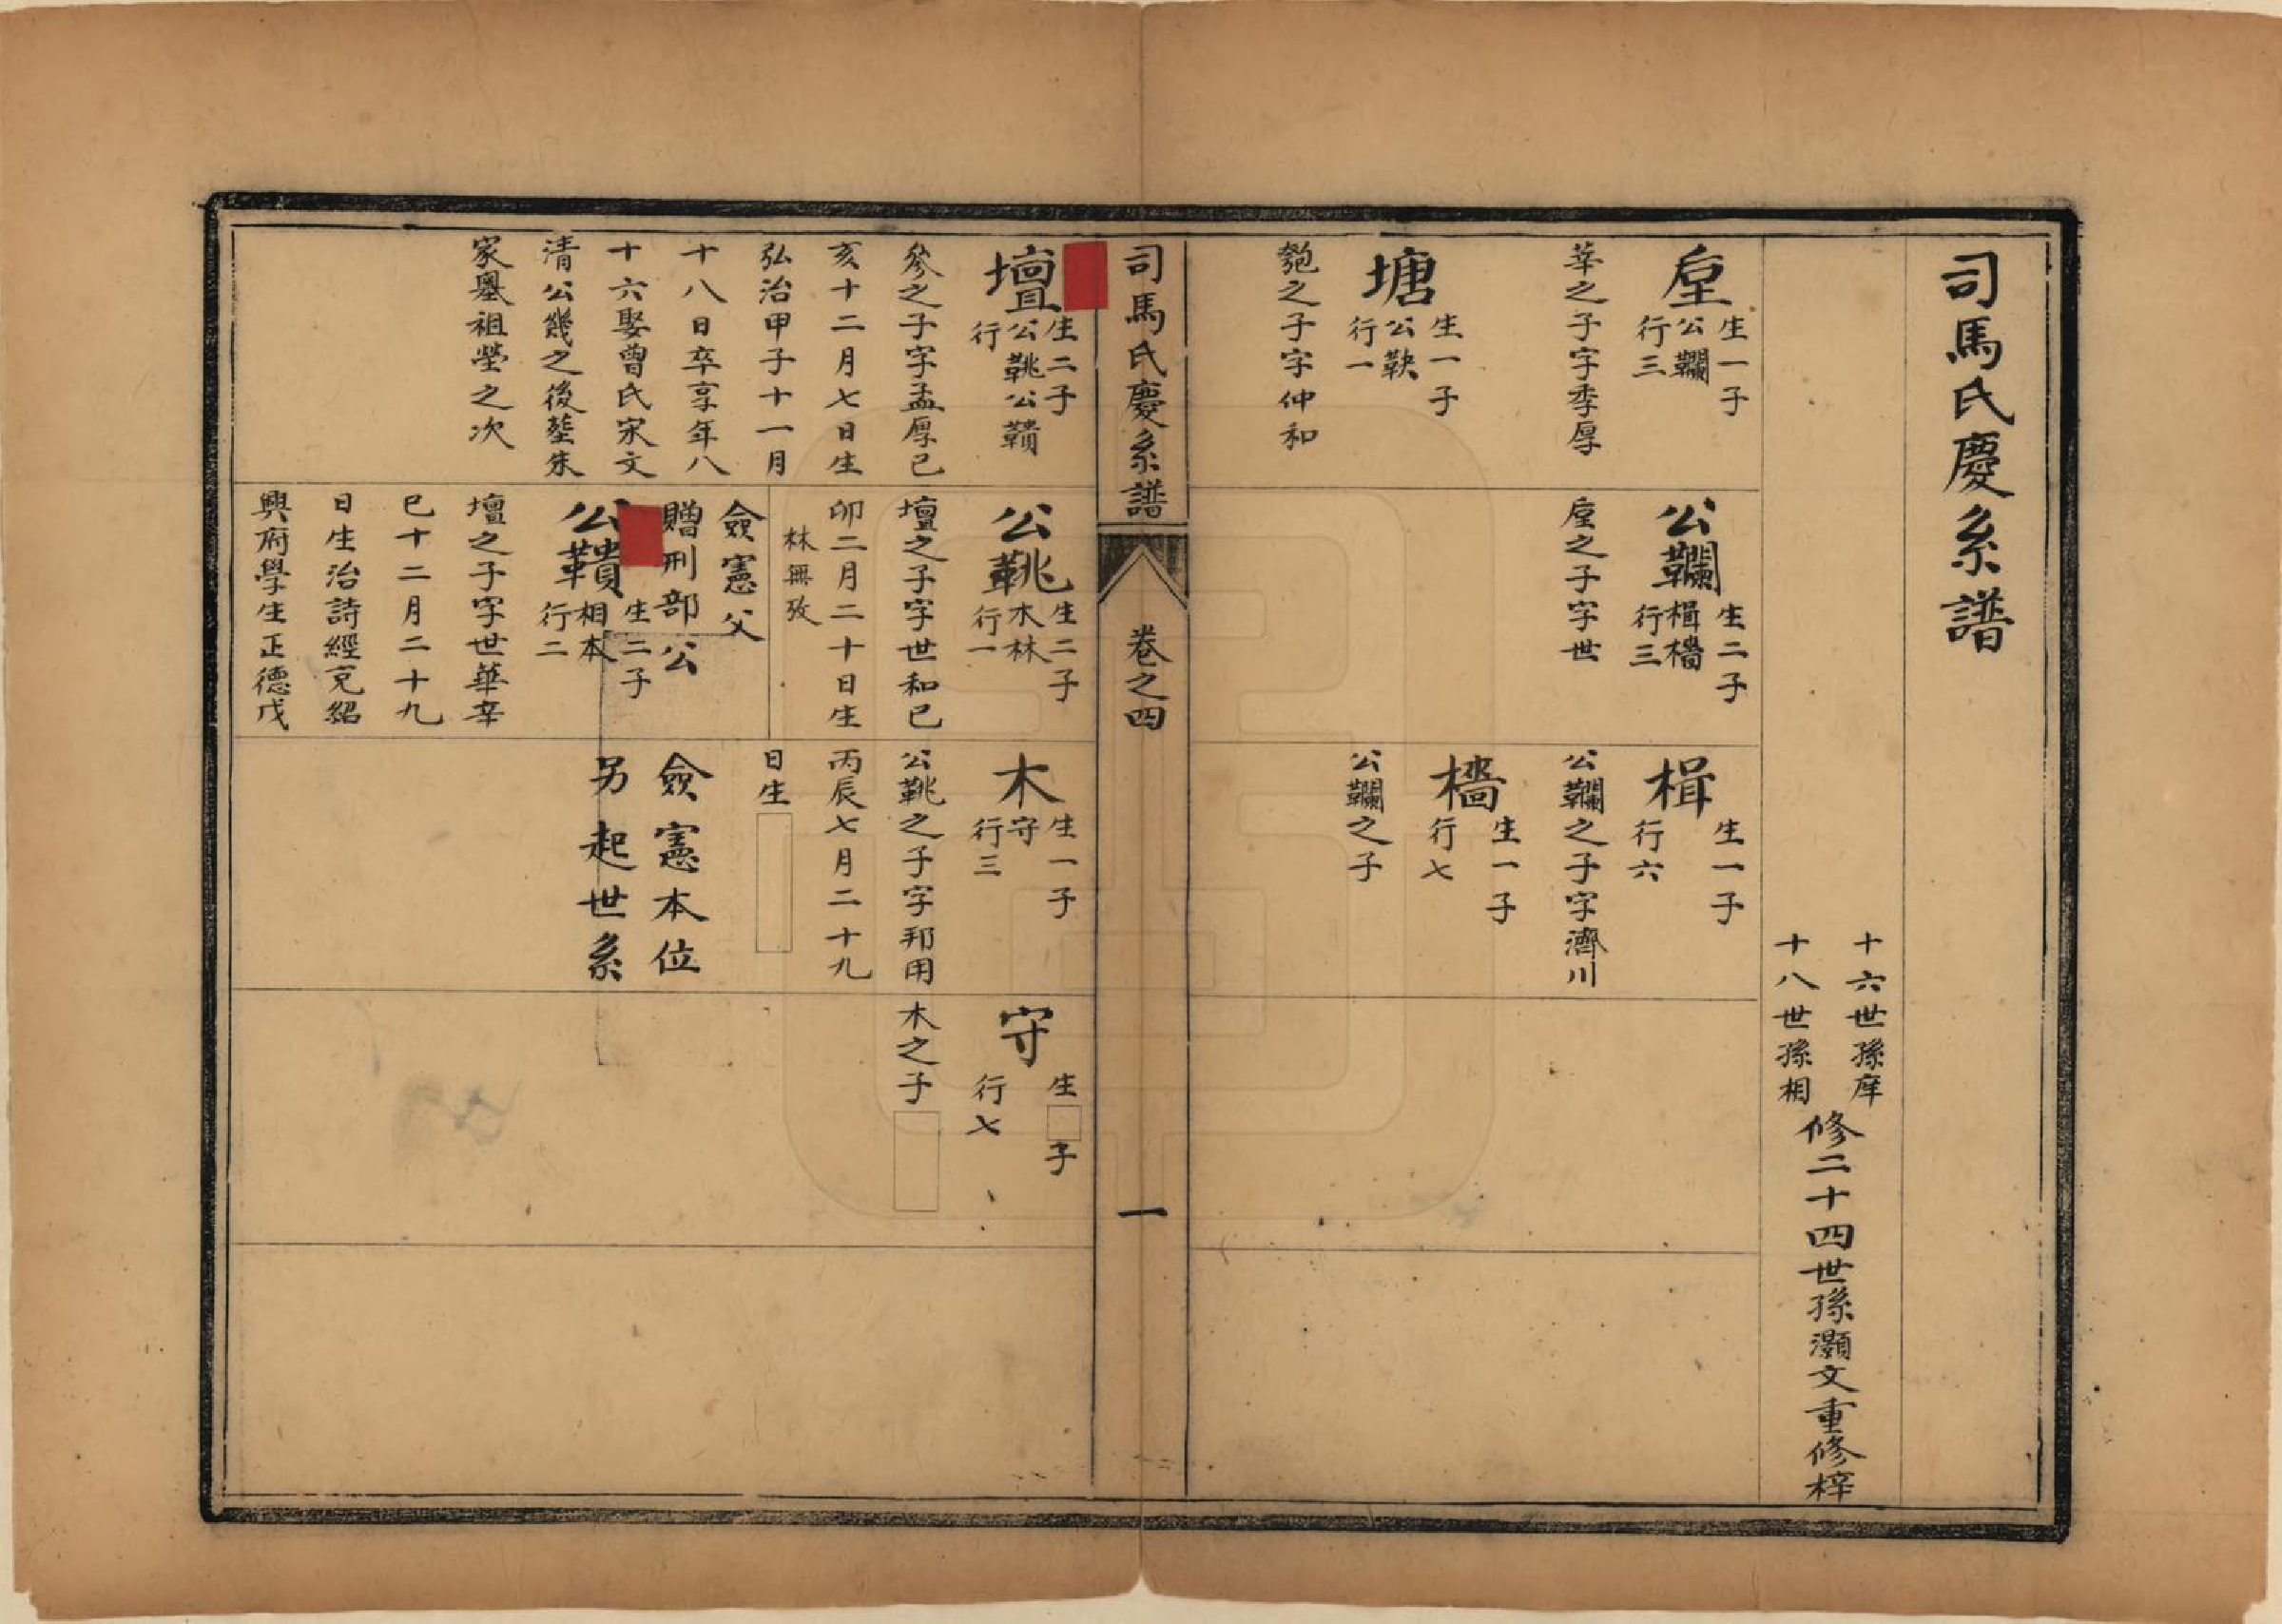 司馬氏慶系譜
十六世孫庠
十八世孫相
修二十四世孫灝文重修梓
垕
生一子
公韊
行三
華之子字季厚
塘
生一子
公鞅
行一
匏之子字仲和
公韊
生二子
楫檣
行三
垕之子字世
楫
生一子
行六
公韊之子字濟川
檣
生一子
行七
公韊之子
司馬氏慶系譜
卷之四
一
壇
生二子
公鞉公鞼
行
參之子字孟厚己
亥十二月七日生
弘治甲子十一月
十八日卒享年八
十六娶曾氏宋文
清公幾之後塟朱
家墺祖塋之次
公鞉
生二子
木林
行一
壇之子字世和己
卯二月二十日生
林無攷
僉憲父
贈刑部公
公鞼
生二子
相本
行二
壇之子字世華辛
巳十二月二十九
日生治詩經充紹
興府學生正德戊
木
生一子
守
行三
公鞉之子字邦用
丙辰七月二十九
日生
僉憲本位
另起世系
守
生 子
行七
木之子